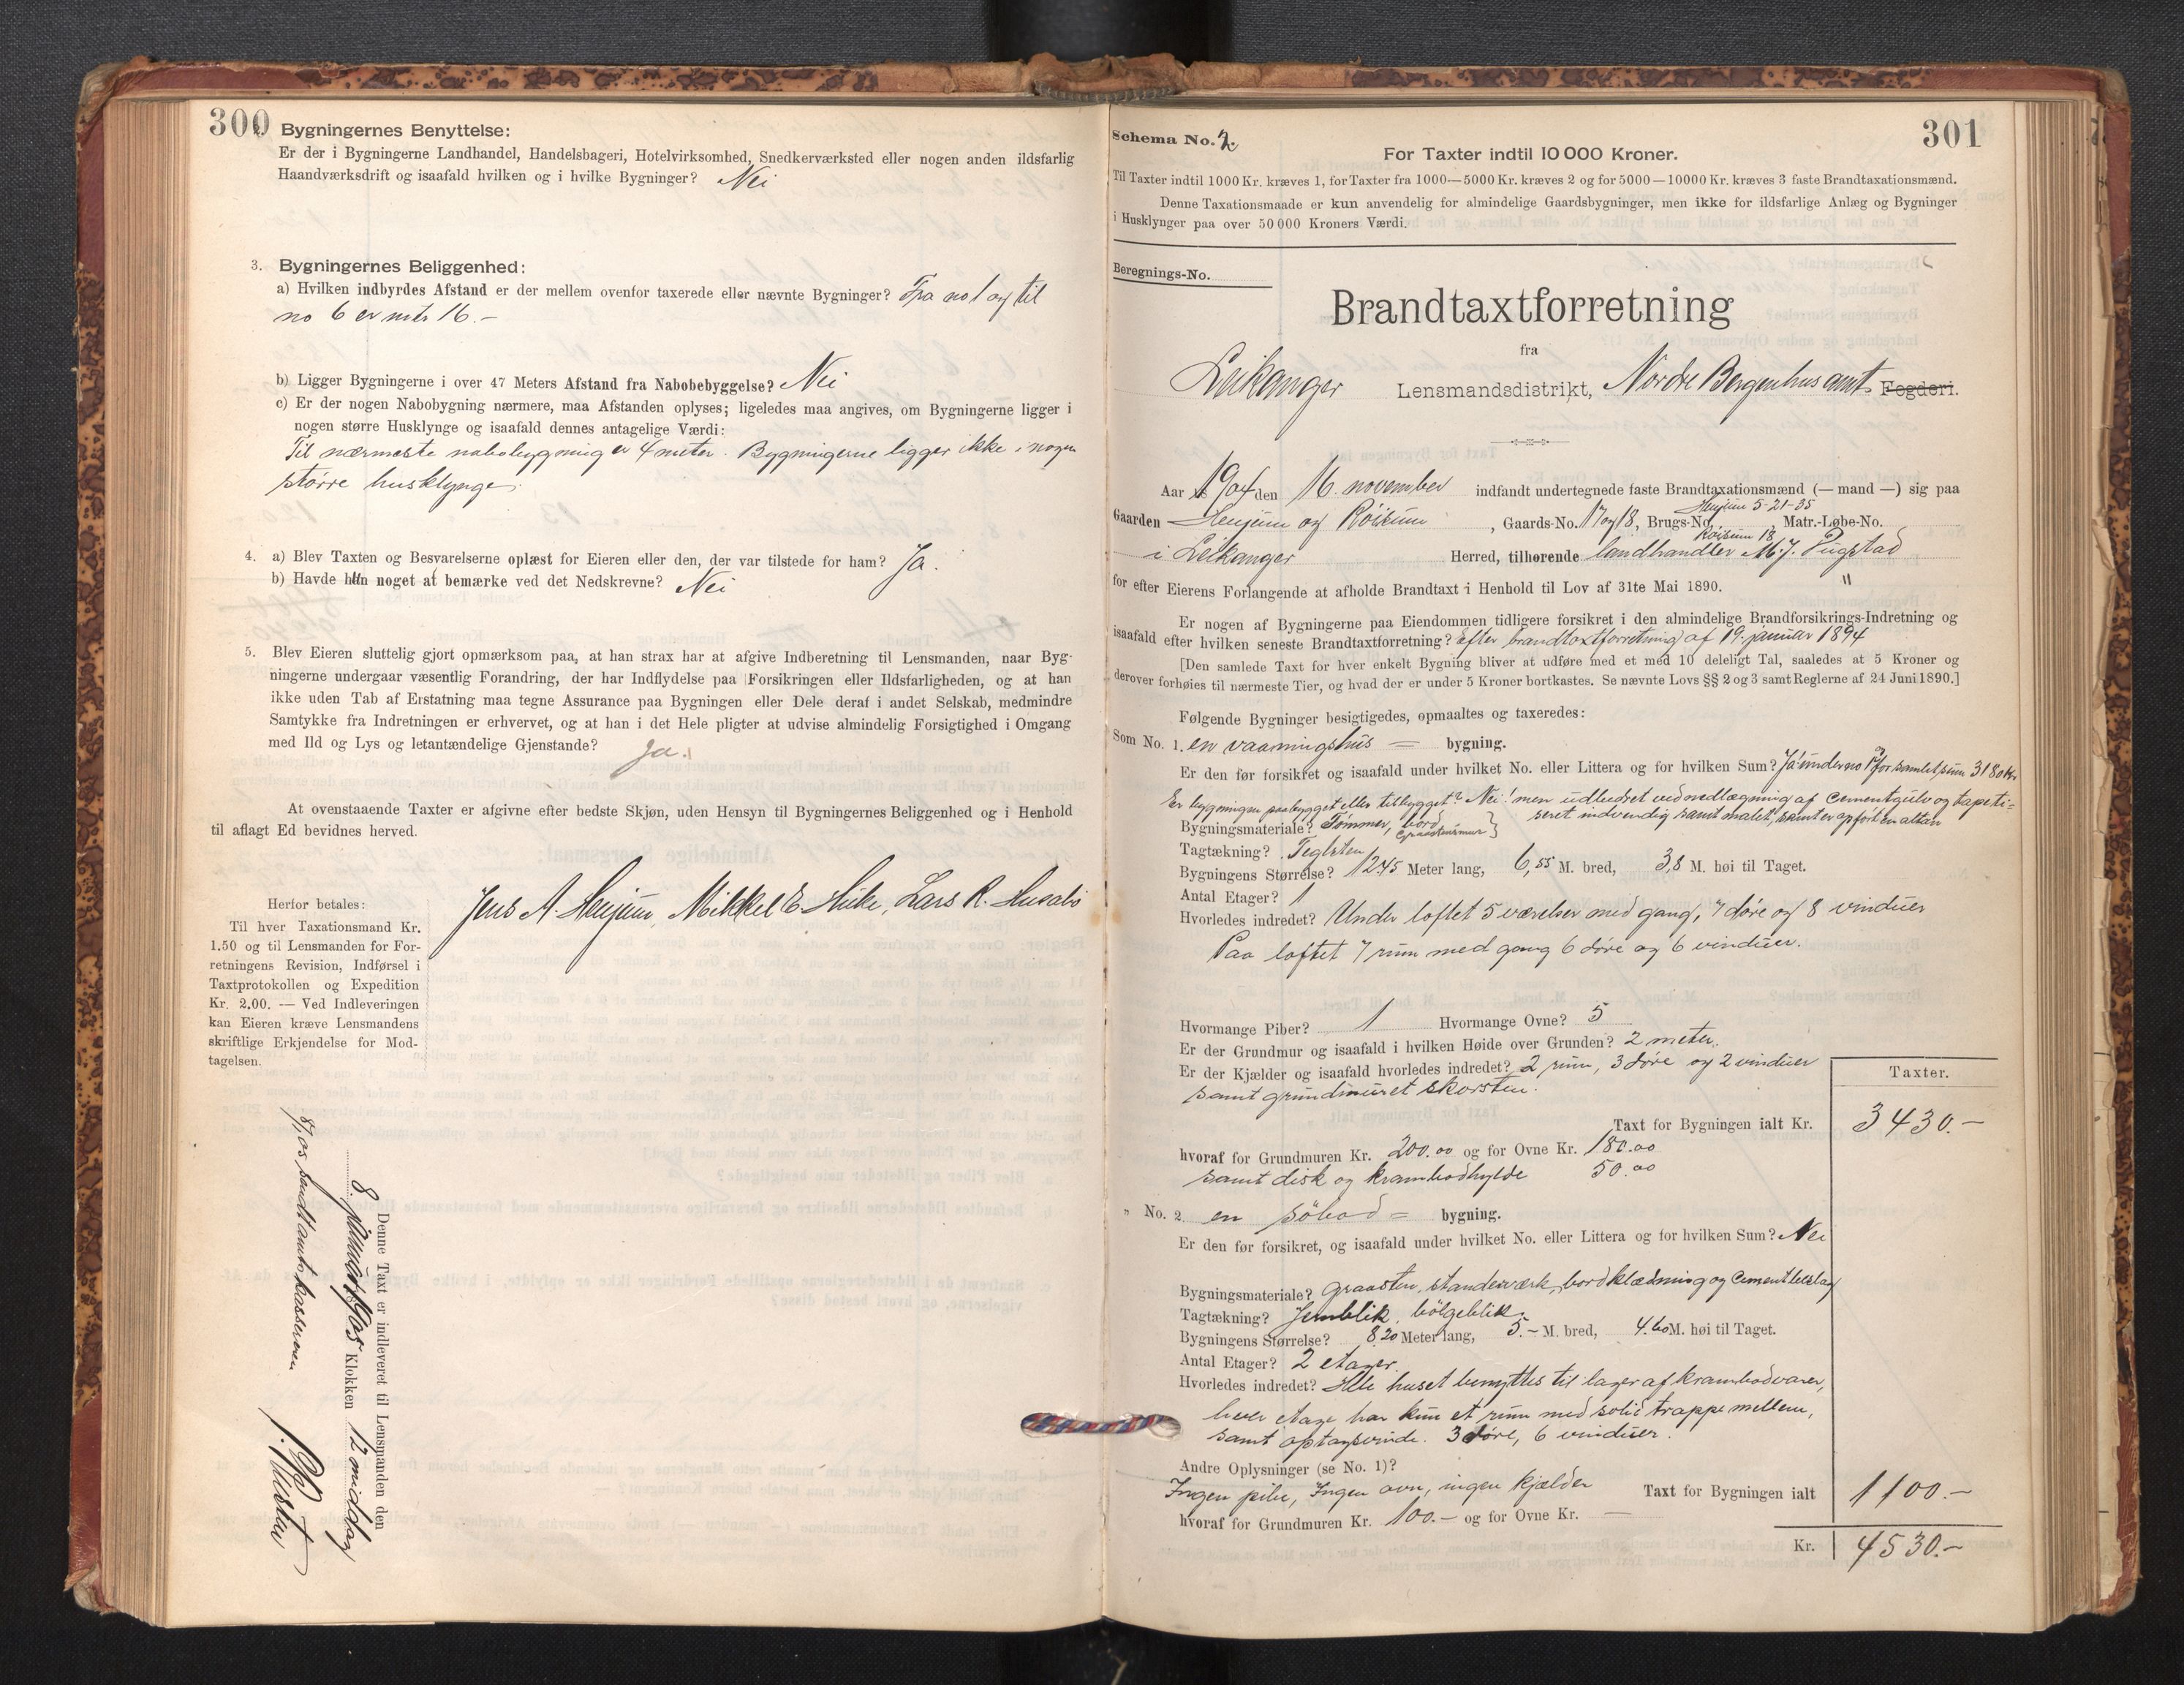 300
Bygningernes Benyttelse:
Er der i Bygningerne Landhandel, Handelsbageri, Hotelvirksomhed, Snedkerværksted eller nogen anden ildsfarlig
Haandværksdrift og isaafald hvilken og i hvilke Bygninger? Nei
3. Bygningernes Beliggenhed:
a) Hvilken indbyrdes Afstand er der mellem ovenfor taxerede eller nævnte Bygninger? Fra no 1 og til
no 6 er mtr 16.-
b) Ligger Bygningerne i over 47 Meters Afstand fra Nabobebyggelse? Nei
c) Er der nogen Nabobygning nærmere, maa Afstanden oplyses; ligeledes maa angives, om Bygningerne ligger i
nogen større Husklynge og isaafald dennes antagelige Værdi:
Til nærmeste nabobygning er 4 meter. Bygningerne ligger ikke i nogen
større husklynge.
4. a) Blev Taxten og Besvarelserne oplæst for Eieren eller den, der var tilstede for ham? Ja.
b) Havde han noget at bemærke ved det Nedskrevne? Nei
5. Blev Eieren sluttelig gjort opmærksom paa, at han strax har at afgive Indberetning til Lensmanden, naar Byg-
ningerne undergaar væsentlig Forandring, der har Indflydelse paa Forsikringen eller Ildsfarligheden, og at han
ikke uden Tab af Erstatning maa tegne Assurance paa Bygningen eller Dele deraf i andet Selskab, medmindre
Samtykke fra Indretningen er erhvervet, og at han i det Hele pligter at udvise almindelig Forsigtighed i Omgang
med Ild og Lys og letantændelige Gjenstande? Ja.
At ovenstaaende Taxter er afgivne efter bedste Skjøn, uden Hensyn til Bygningernes Beliggenhed og i Henhold
til aflagt Ed bevidnes herved.
Jens A. Henjum, Mikkel E. Lars R. Husabö
Herfor betales:
Til hver Taxationsmand Kr.
1.50 og til Lensmanden for For-
retningens Revision, Indførsel i
Taxtprotokollen og Expedition
Kr. 2.00. — Ved Indleveringen
kan Eieren kræve Lensmandens
skriftlige Erkjendelse for Mod-
tagelsen.
Denne Taxt er indleveret til Lensmanden den
8. januar 1905 Klokken 12 middag
8/1 05 sendt amtskassereren
301
Schema No. 2.
For Taxter indtil 10 000 Kroner.
Til Taxter indtil 1000 Kr. kræves 1, for Taxter fra 1000—5000 Kr. kræves 2 og for 5000—10000 Kr. kræves 3 faste Brandtaxationsmænd.
Denne Taxationsmaade er kun anvendelig for almindelige Gaardsbygninger, men ikke for ildsfarlige Anlæg og Bygninger
i Husklynger paa over 50 000 Kroners Værdi.
Beregnings-No.
Brandtaxtforretning
fra
Leikanger Lensmandsdistrikt, Nordre Bergenhus amt Fogderi.
Aar 1904 den 16. november indfandt undertegnede faste Brandtaxationsmænd (— mand —) sig paa
Henjum 5-21-35
Gaarden Henjum og Röisum, Gaards-No. 17 og 18, Brugs-No. Matr.-Løbe-No.
Röisum 18
i Leikanger Herred, tilhørende landhandler M. J.
for efter Eierens Forlangende at afholde Brandtaxt i Henhold til Lov af 31te Mai 1890.
Er nogen af Bygningerne paa Eiendommen tidligere forsikret i den almindelige Brandforsikrings-Indretning og
isaafald efter hvilken seneste Brandtaxtforretning? Efter brandtaxtforretning af 19. januar 1894
[Den samlede Taxt for hver enkelt Bygning bliver at udføre med et med 10 deleligt Tal, saaledes at 5 Kroner og
derover forhøies til nærmeste Tier, og hvad der er under 5 Kroner bortkastes. Se nævnte Lovs §§ 2 og 3 samt Reglerne af 24 Juni 1890.]
Følgende Bygninger besigtigedes, opmaaltes og taxeredes:
Som No. 1. en vaaningshus = bygning.
Er den før forsikret og isaafald under hvilket No. eller Littera og for hvilken Sum? Ja under no for samlet sum 3180 kr
Er bygningen paabygget eller tilbygget? Nei! men udbedret ved nedlægning af cementgulv og tapeti-
seret indvendig samt malet, samt er opfört en altan
Bygningsmateriale? Tømmer, bord, graastensmur
Tagtækning? Teglsten
Bygningens Størrelse? 12.45 Meter lang, 6,55 M. bred, 3,8 M. høi til Taget.
Antal Etager? 1
Hvorledes indredet? Under loftet 5 værelser med gang, 7 döre og 8 vinduer
Paa loftet 7 rum med gang 6 döre og 6 vinduer.
Hvormange Piber? 1 Hvormange Ovne? 5
Er der Grundmur og isaafald i hvilken Høide over Grunden? 2 meter.
Er der Kjælder og isaafald hvorledes indredet? 2 rum, 3 döre og 2 vinduer
samt grundmuret skorsten.
Taxter.
Taxt for Bygningen ialt Kr. 3430.-
hvoraf for Grundmuren Kr. 200.00 og for Ovne Kr. 180.00
samt disk og krambodhylde 50.00
" No. 2. en söbod = bygning.
Er den før forsikret, og isaafald under hvilket No. eller Littera og for hvilken Sum? Nei
Bygningsmateriale? Graasten, standerværk, bordklædning og cementbeslag
Tagtækning? Jernblik, bölgeblik.
Bygningens Størrelse? 8.20 Meter lang, 5.- M. bred, 4.60 M. høi til Taget.
Antal Etager? 2 etager.
Hvorledes indredet? Hele huset benyttes til lager af krambodvarer,
hver etage har kun et rum med solid trappe mellem,
samt optagsvinde. 3 döre, 6 vinduer.
Andre Oplysninger (se No. 1)?
Ingen pibe, Ingen ovn, ingen kjælder
Taxt for Bygningen ialt 1100.-
hvoraf for Grundmuren Kr. 100.- og for Ovne Kr. —
Kr. 4530.-